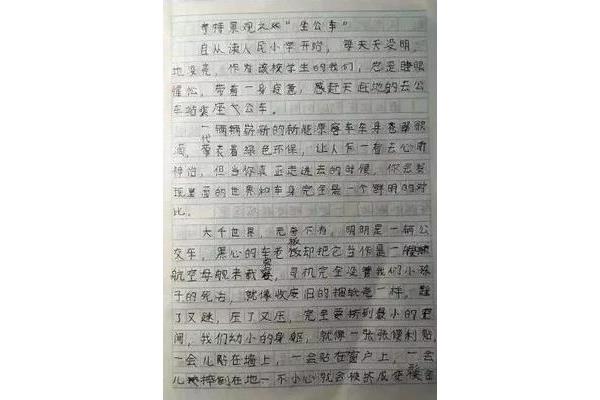 奇特景观之死"坐公车"
自从读人民小学开始，每天天没明，
地没亮，作为该校学生的我们，总是睡眼
惺忪，带有一身疲惫，感赶天在地的去公
车站坐公车。
一辆辆崭新的新能源客车车身苍翠欲
滴，代表着绿色环保，让人有一看去心旷
神怡，但当你真正走进去的时候，你会发
现里面的世界和车身完全是一个鲜明的对
比。
大千世界，无奇不有，明明是一辆公
交车，黑心的车老板却把它当作是一艘
航空母舰来载客，司机完全没管我们小孩
子的死活，就像收废旧的捆纸壳一样，
了又，压了又压，完全要挤到最小的空
间，我们幼小的身躯，就像一张张便利贴，
一会儿贴在墙上，一会贴在窗户上，一会
儿摔倒在地一不小心就会被挤成